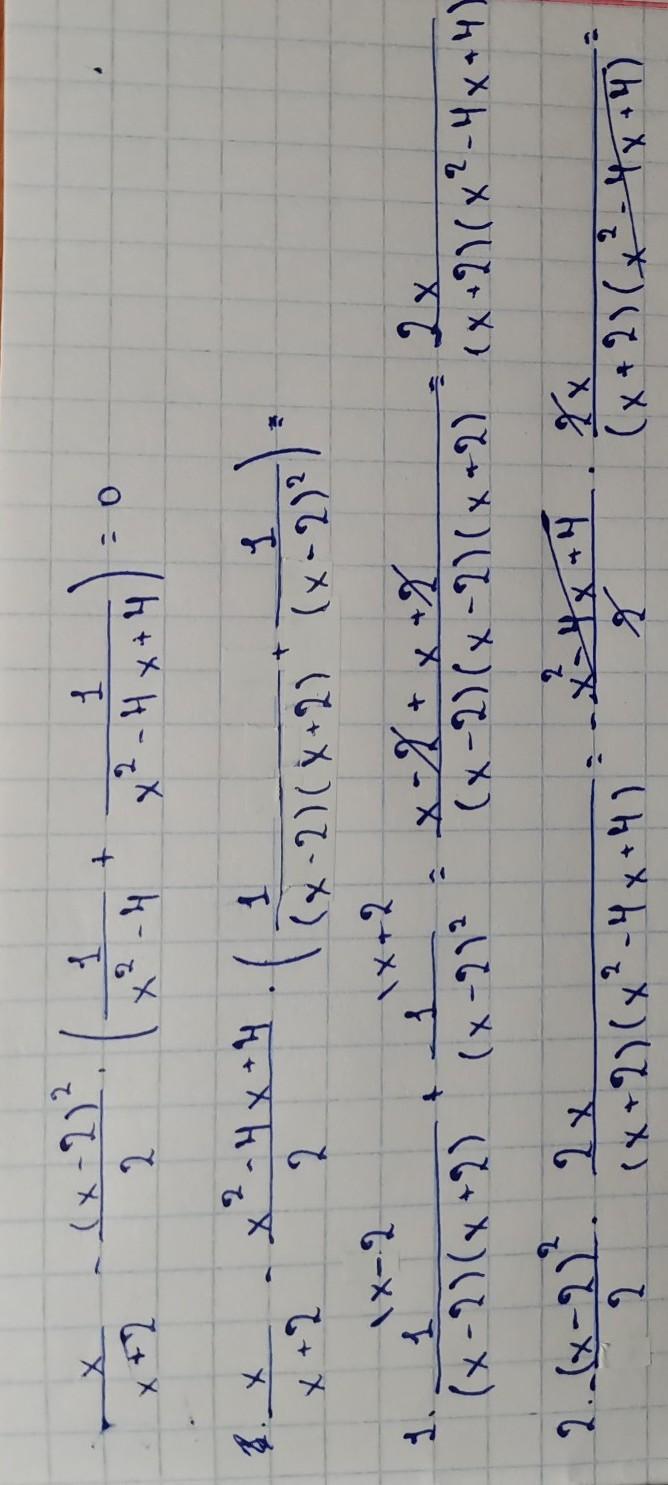 x/(x+2) - (x-2)²/2 · (1/(x²-4) + 1/(x²-4x+4)) = 0
1. x/(x+2) - (x²-4x+4)/2 · (1/((x-2)(x+2)) + 1/(x-2)²) =
1. 1/((x-2)(x+2)) \x-2 + 1/(x-2)² \x+2 = (x-2+x+2)/((x-2)(x-2)(x+2)) = 2x/((x+2)(x²-4x+4))
2. -(x-2)²/2 · 2x/((x+2)(x²-4x+4)) = -(x²-4x+4)/2 · 2x/((x+2)(x²-4x+4)) =